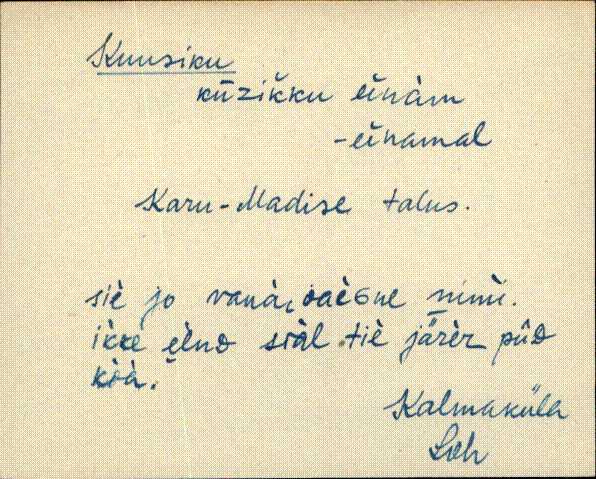 Kuusiku
kūzikku ĕinàm
-ĕinamal
Karu-Madise talus.
siè jo vanà, nimì.
ikkè sial tiè järèr pūD
kòà.
Kalmaküla
Loh